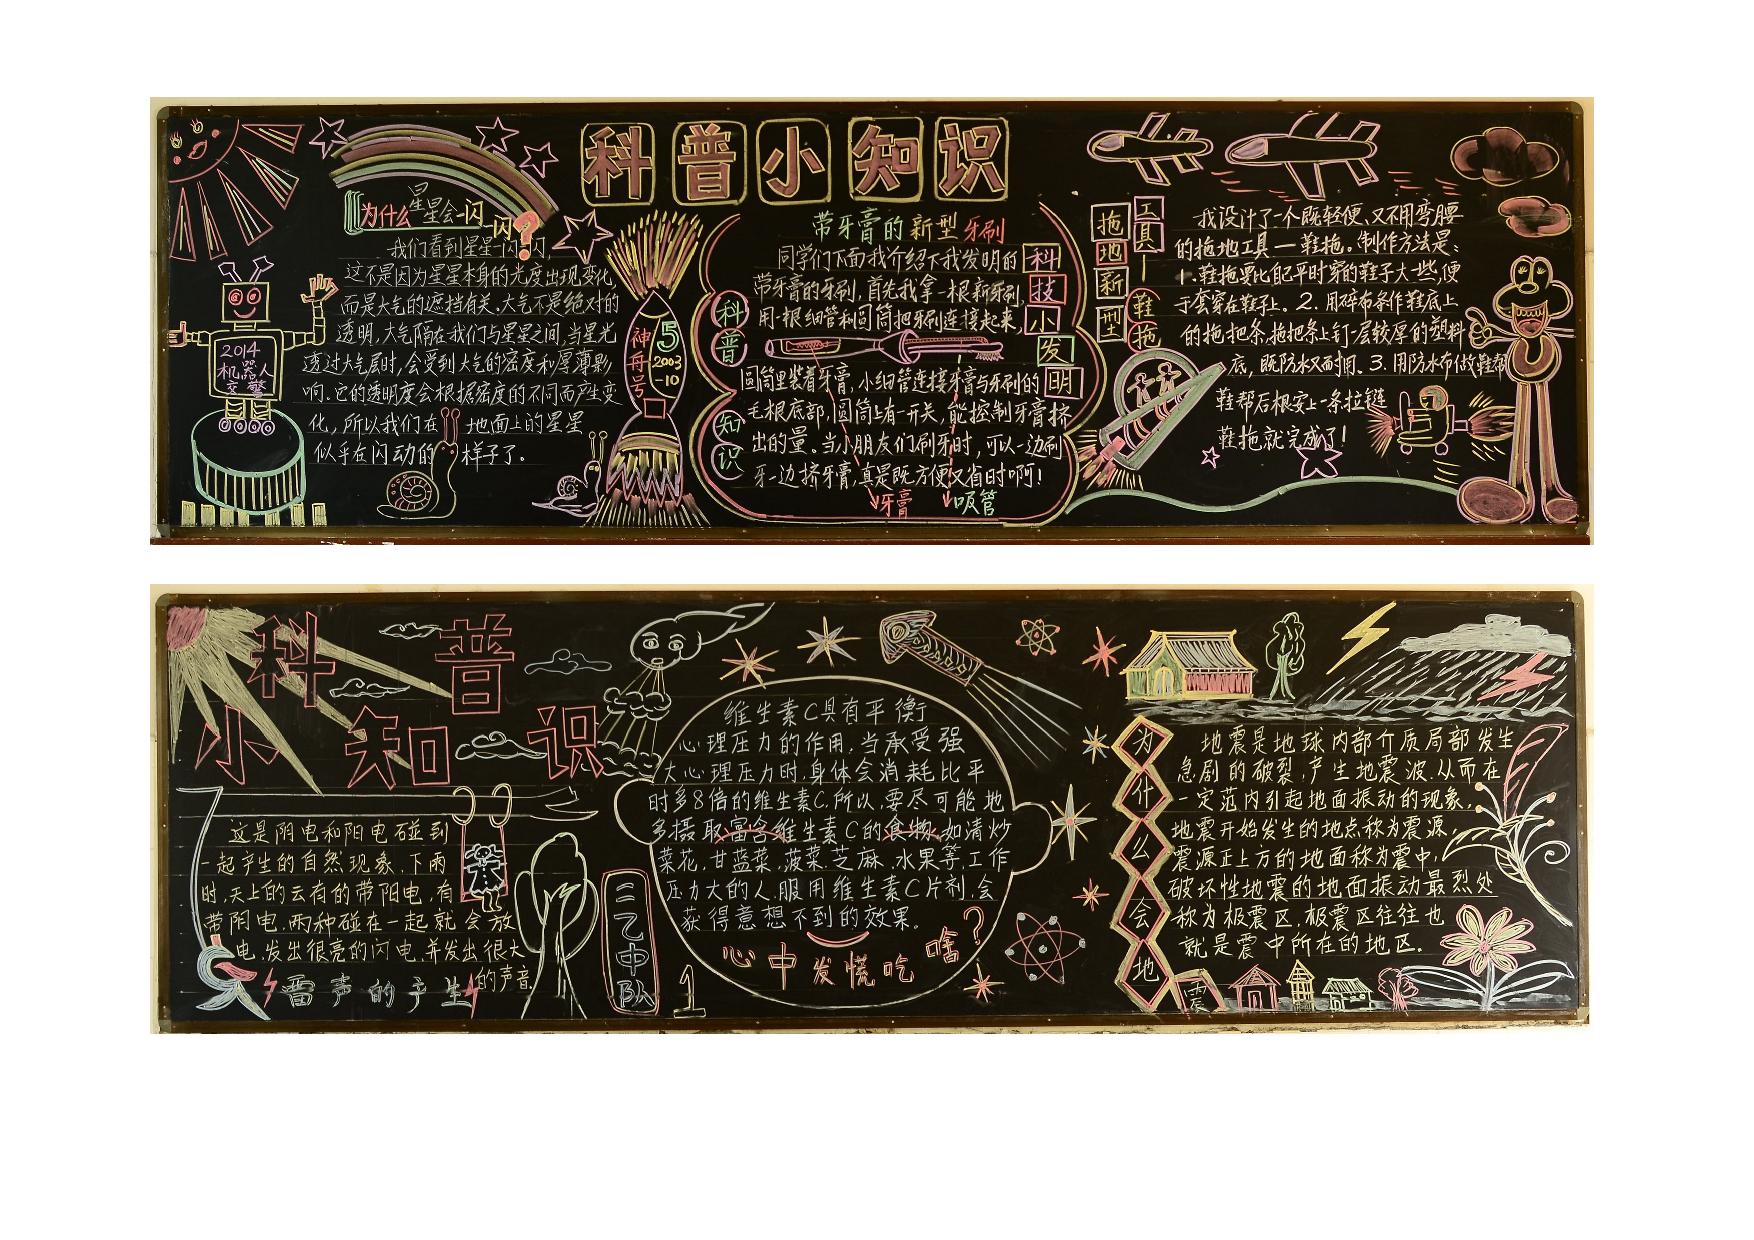 科普小知识
为什么星星会一闪一闪?
我们看到星星一闪一闪,
这不是因为星星本身的光度出现变化,
而是大气的遮挡有关。大气不是绝对的
透明,大气隔在我们与星星之间,当星光
透过大气层时,会受到大气的密度和厚薄影
响。它的透明度会根据密度的不同而产生变
化,所以我们在地面上的星星
似乎在闪动的样子了。
2014
机器人
交警
神舟号
5
2003
-10
科普知识
带牙膏的新型牙刷
科技小发明
同学们下面我介绍下我发明的
带牙膏的牙刷,首先我拿一根新牙刷,
用一根细管和圆筒把牙刷连接起来,
圆筒里装着牙膏,小细管连接牙膏与牙刷的
毛根底部,圆筒上有一开关,能控制牙膏挤
出的量。当小朋友们刷牙时,可以一边刷
牙一边挤牙膏,真是既方便又省时啊!
牙膏
吸管
拖地新型
工具—鞋拖
我设计了一个既轻便、又不用弯腰
的拖地工具—鞋拖。制作方法是:
1.鞋拖要比自己平时穿的鞋子大一些,便
于套穿在鞋子上。2.用碎布条作鞋底上
的拖把条,拖把条上钉一层较厚的塑料
底,既防水又耐用。3.用防水布做鞋帮
鞋帮后根安上一条拉链
鞋拖就完成了!
科普
小知识
这是阴电和阳电碰到
一起产生的自然现象,下雨
时,天上的云有的带阳电,有
带阴电,两种碰在一起就会放
电,发出很亮的闪电,并发出很大
的声音
雷声的产生
三乙中队
1
维生素C具有平衡
心理压力的作用,当承受强
大心理压力时,身体会消耗比平
时多8倍的维生素C,所以,要尽可能地
多摄取富含维生素C的食物,如清炒
菜花,甘蓝菜,菠菜,芝麻,水果等,工作
压力大的人,服用维生素C片剂,会
获得意想不到的效果。
心中发慌吃啥?
为什么会地震
地震是地球内部介质局部发生
急剧的破裂,产生地震波,从而在
一定范内引起地面振动的现象,
地震开始发生的地点称为震源,
震源正上方的地面称为震中,
破坏性地震的地面振动最烈处
称为极震区,极震区往往也
就是震中所在的地区。